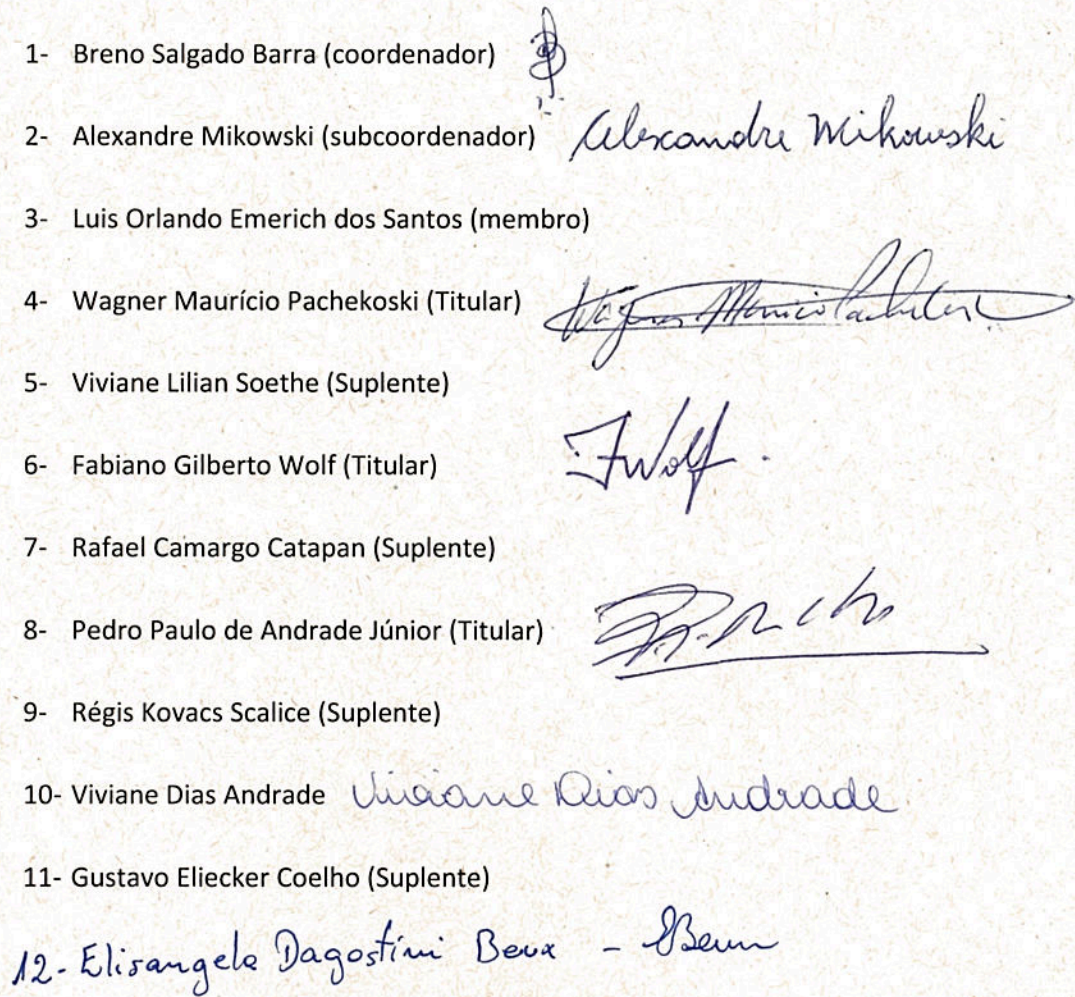 1- Breno Salgado Barra (coordenador)
2- Alexandre Mikowski (subcoordenador) Alexandre Mikowski
3- Luis Orlando Emerich dos Santos (membro)
4- Wagner Maurício Pachekoski (Titular) Wagner Maurício
5- Viviane Lilian Soethe (Suplente)
6- Fabiano Gilberto Wolf (Titular) FWolf
7- Rafael Camargo Catapan (Suplente)
8- Pedro Paulo de Andrade Júnior (Titular)
9- Régis Kovacs Scalice (Suplente)
10- Viviane Dias Andrade Viviane Dias Andrade
11- Gustavo Eliecker Coelho (Suplente)
12- Elisangela Dagostini Beux -